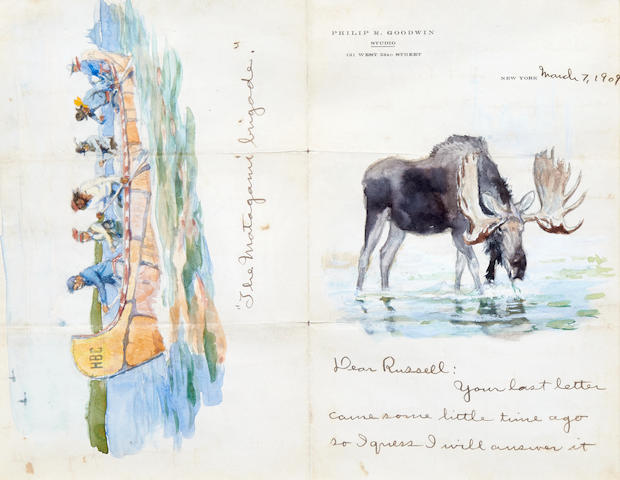 PHILIP R. GOODWIN
STUDIO
121 WEST 23RD STREET
NEW YORK March 7, 1909
Dear Russell:
Your last letter
came some little time ago
so I guess I will answer it
"The Matagami brigade."
HBC